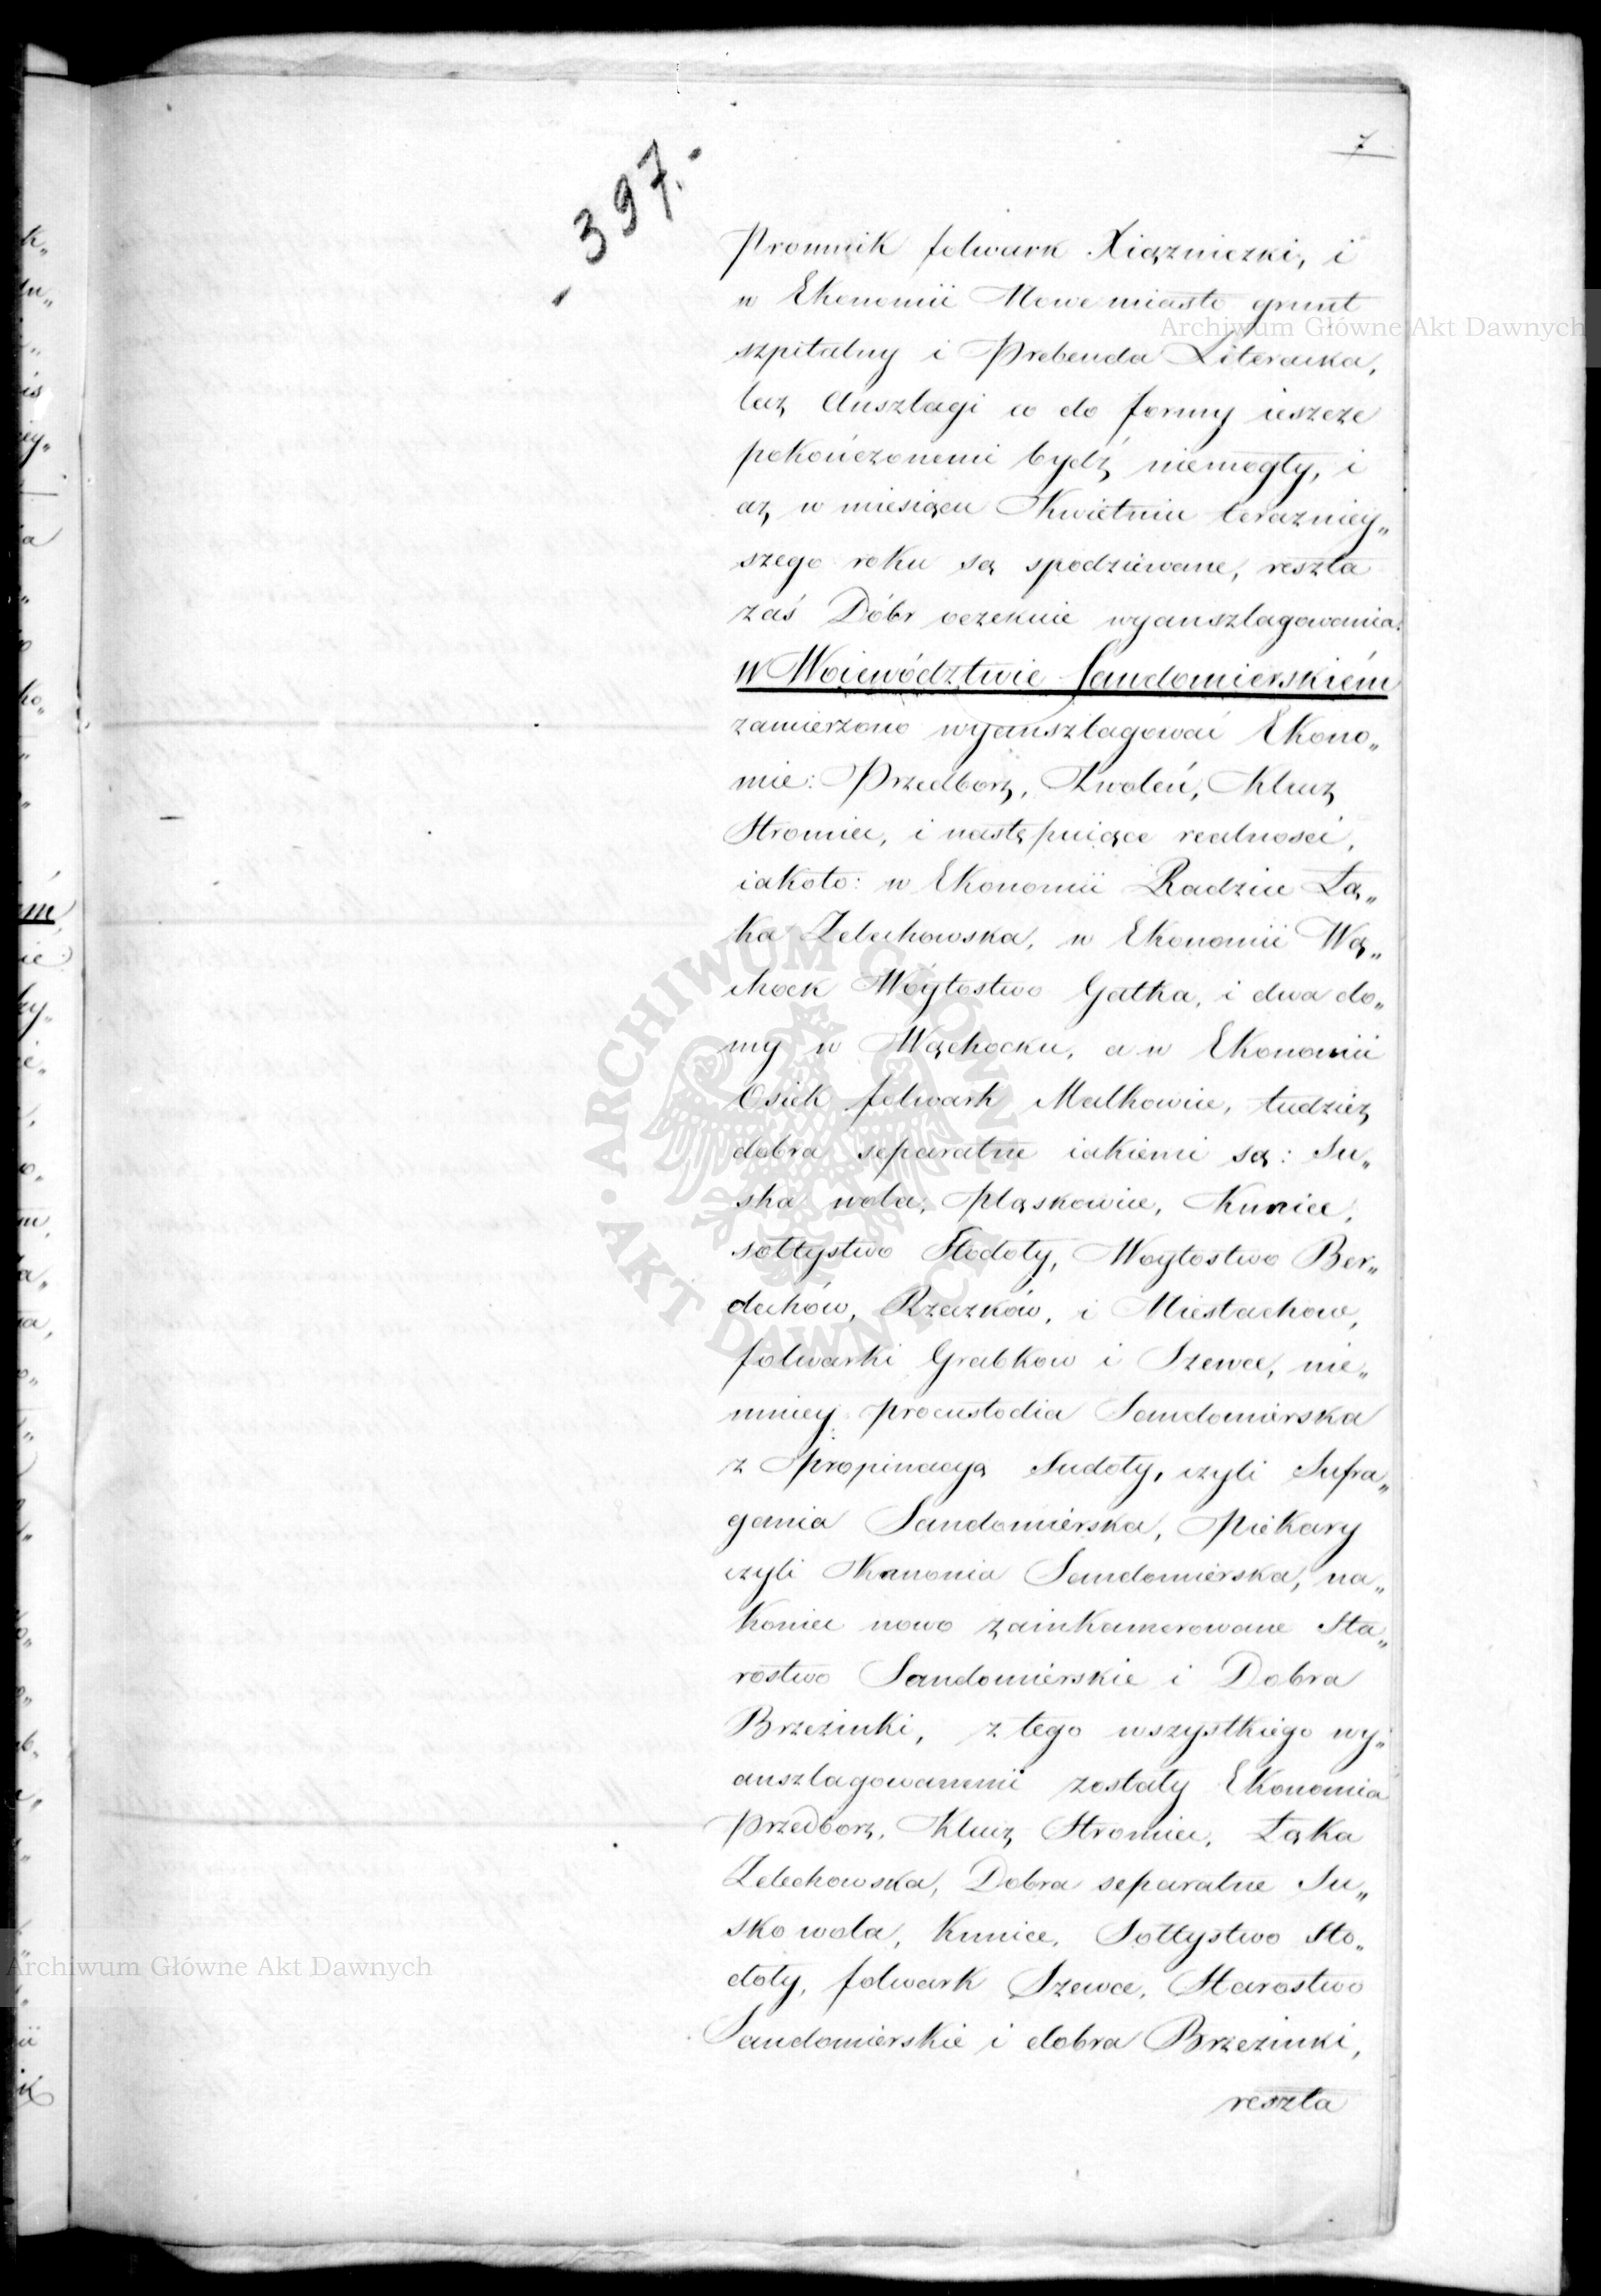 397.
7
Promnik folwark Xiązniczki, i
w Ekonomii Nowe miasto grunt
szpitalny i Prebenda Literacka,
lecz Anszlagi co do formy ieszcze
pokończonemi bydź niemogły, i
aż w miesiącu Kwietniu terazniey„
szego roku są spodziewane, reszta
zaś Dóbr oczekuie wyanszlagowania.
W Woiewództwie Sandomierskiém
zamierzono wyanszlagować Ekono„
mie: Przedborz, Zwoleń, Klucz
Stromiec, i następuiące realnosci,
iakoto: w Ekonomii Radzice Łą„
ka Zelechowska, w Ekonomii Wą„
chock Wóytostwo Gatka, i dwa do„
my w Wąchocku, a w Ekonomii
Osiek folwark Malkowice, tudzież
dobra separatne iakiemi są: Su„
ska wola, Pląskowice, Kunice,
sołtystwo Stodoły, Woytostwo Ber„
dechów, Rzeczków, i Miestachow,
folwarki Grabkow i Szewce, nie„
mniey procustodia Sandomierska
z propinacyą Sudoły, czyli Sufra„
gania Sandomierska, Piekary
czyli Kanonia Sandomierska, na„
koniec nowo zainkamerowane Sta„
rostwo Sandomierskie i Dobra
Brzezinki, z tego wszystkiego wy„
anszlagowanemi zostały Ekonomia
Przedborz, Klucz Stromiec, Łąka
Zelechowska, Dobra separatne Su„
sko wola, Kunice, Sołtystwo Sto„
doły, folwark Szewce, Starostwo
Sandomierskie i dobra Brzezinki,
reszta
Archiwum Główne Akt Dawnych
Archiwum Główne Akt Dawnych
ARCHIWUM GŁÓWNE AKT DAWNYCH